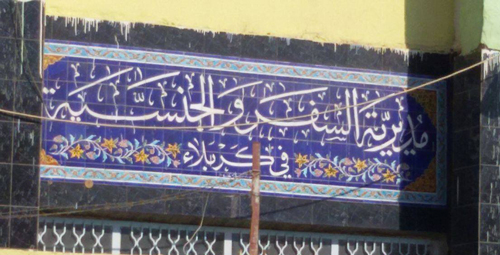 مُديريَّة السَفر وَ الجنسَّية
في كَربَلاء